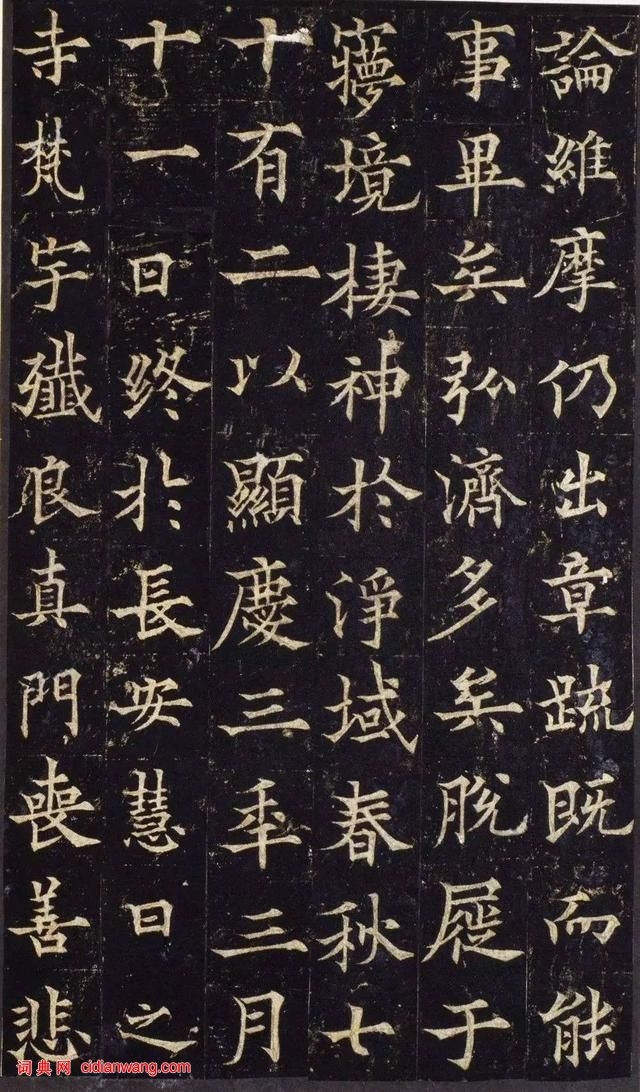 論維摩仍出章䟽既而能
事畢矣弘濟多矣脫屣于
寱境棲神於淨域春秋七
十有二以顯慶三年三月
十一日終於長安慧日之
寺梵宇殲良真門喪善悲
词典网 cidianwang.com